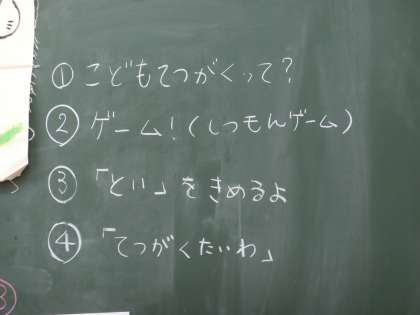 ① こどもてつがくって？
② ゲーム！(しつもんゲーム)
③ 「とい」をきめるよ
④ 「てつがくたいわ」